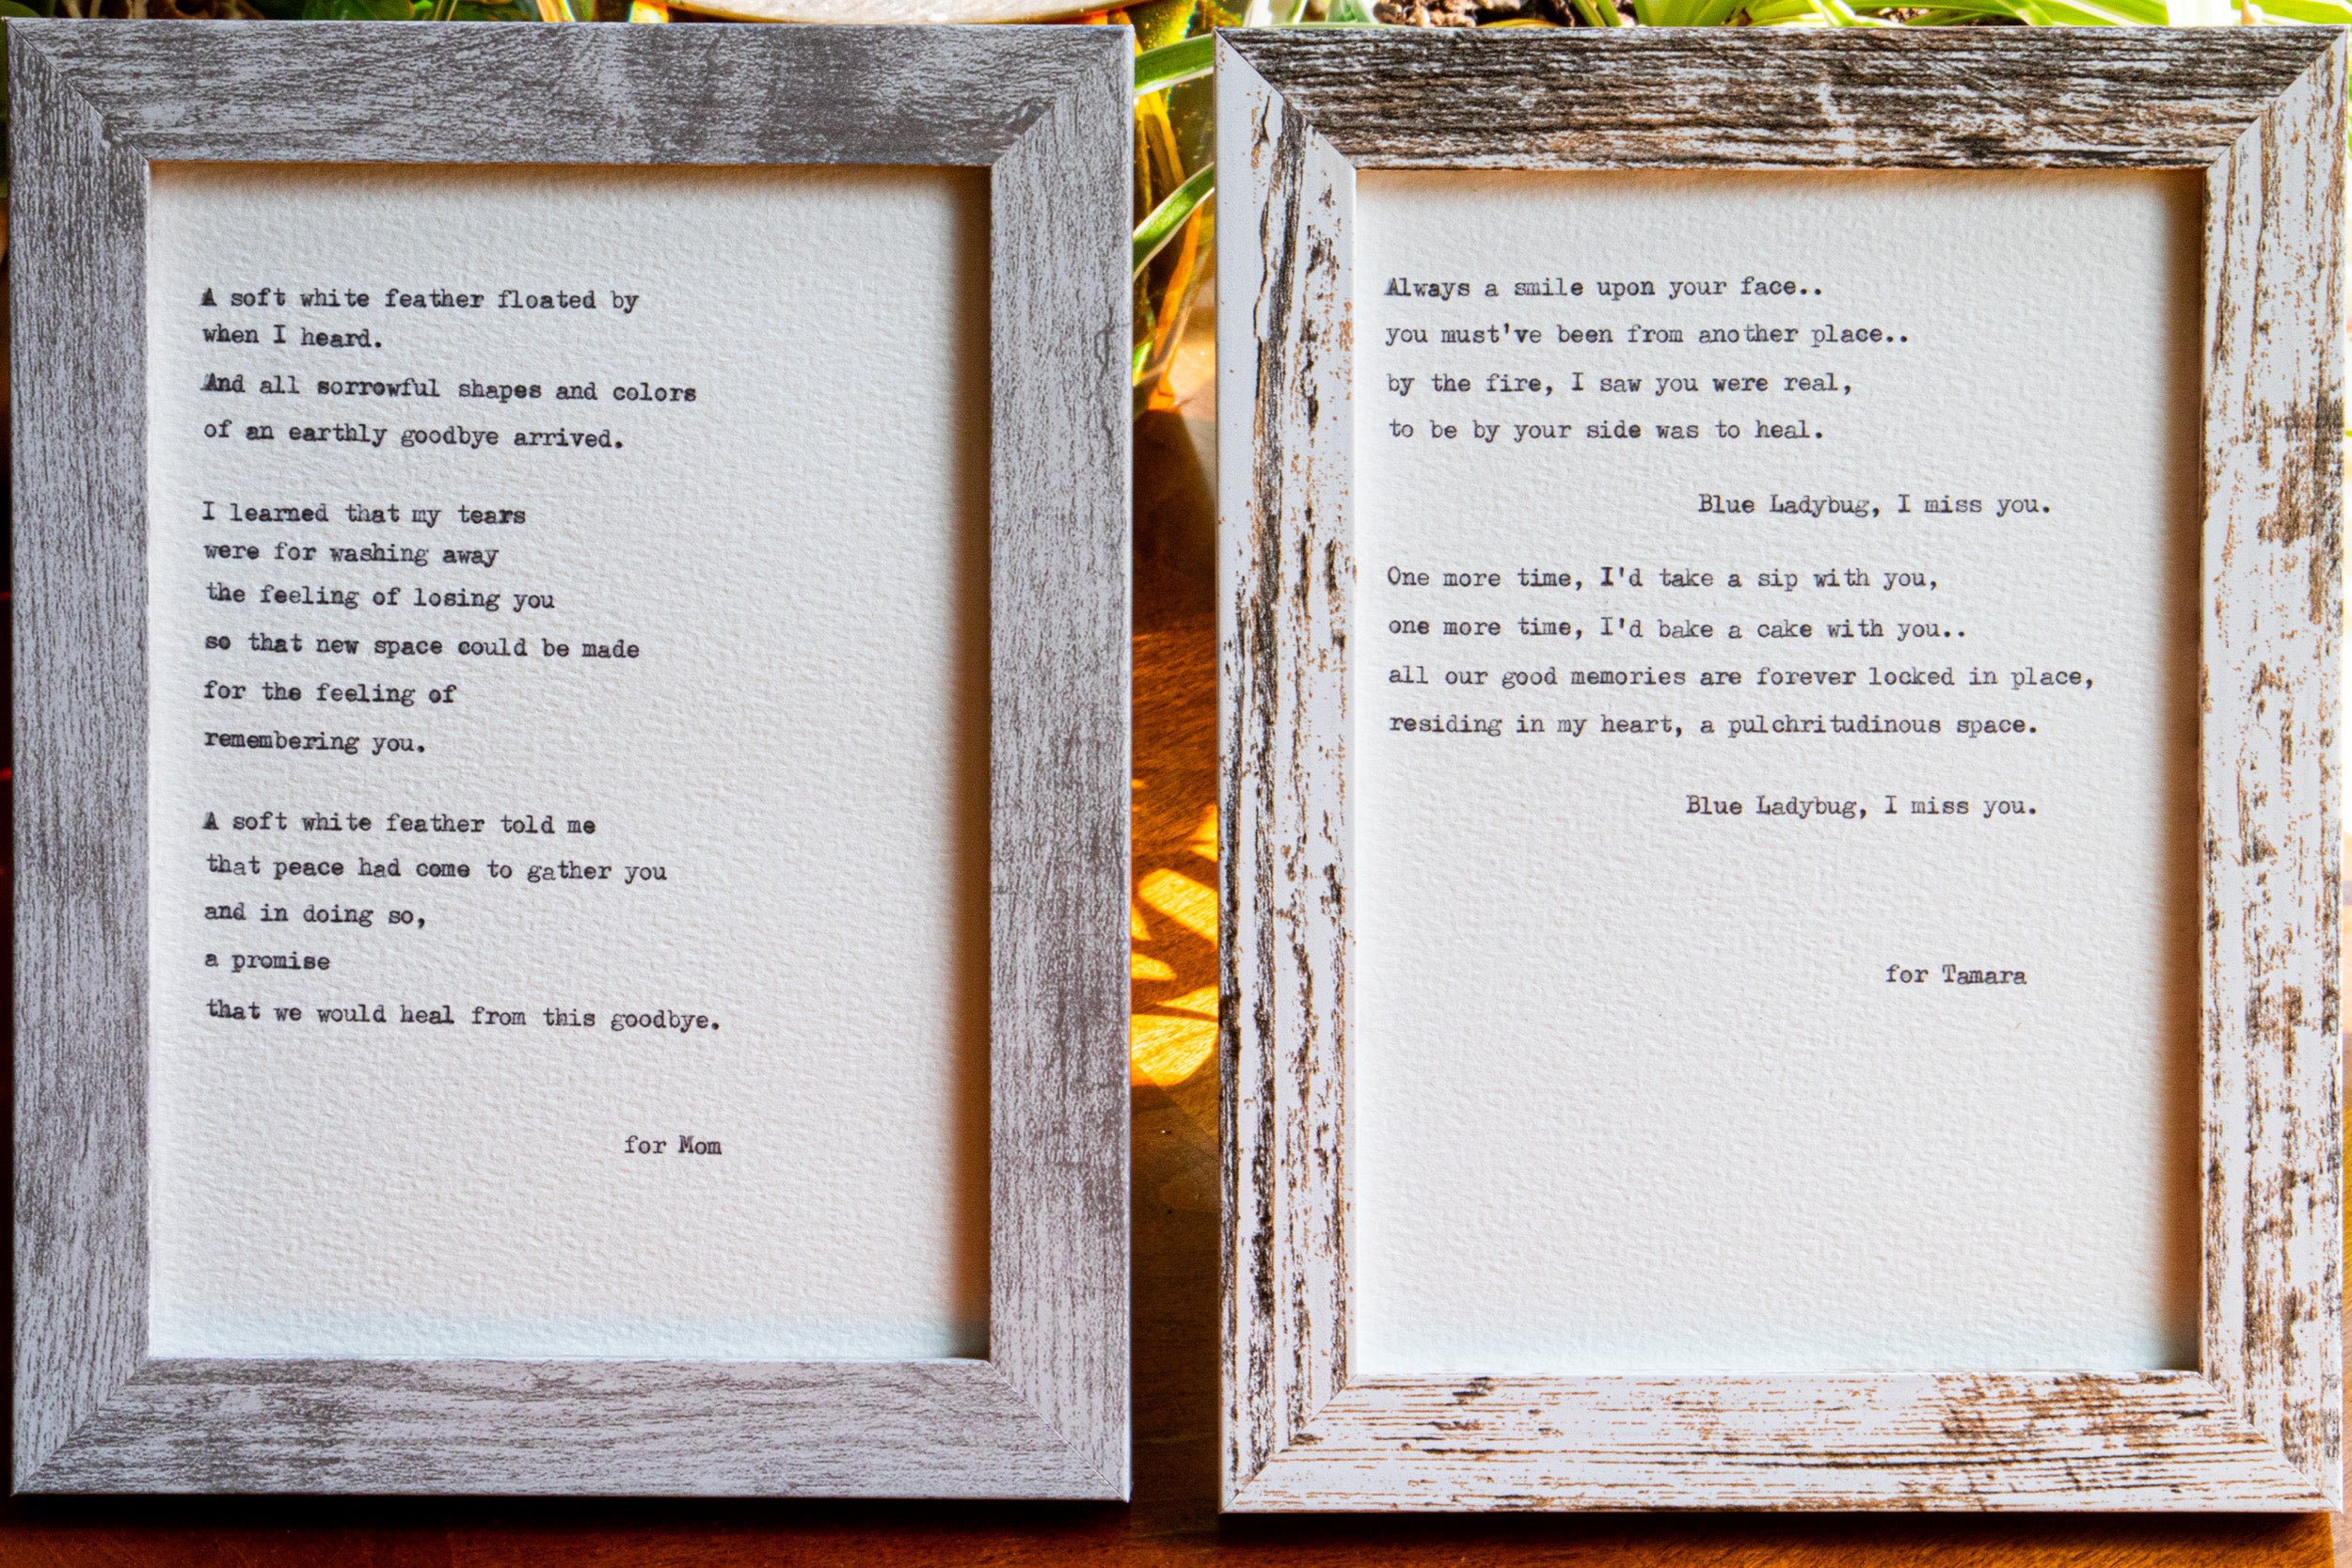 A soft white feather floated by
when I heard.
And all sorrowful shapes and colors
of an earthly goodbye arrived.
I learned that my tears
were for washing away
the feeling of losing you
so that new space could be made
for the feeling of
remembering you.
A soft white feather told me
that peace had come to gather you
and in doing so,
a promise
that we would heal from this goodbye.
for Mom
Always a smile upon your face..
you must've been from another place..
by the fire, I saw you were real,
to be by your side was to heal.
Blue Ladybug, I miss you.
One more time, I'd take a sip with you,
one more time, I'd bake a cake with you..
all our good memories are forever locked in place,
residing in my heart, a pulchritudinous space.
Blue Ladybug, I miss you.
for Tamara